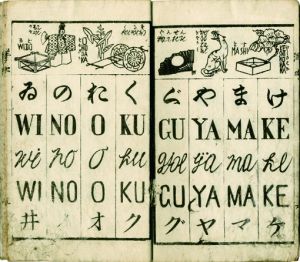 WIDO
MASU
ゐ の お く
WI NO O KU
wi no o ku
WI NO O KU
井 ノ オ ク
ぐ や ま け
GU YA MA KE
gu ya ma ke
GU YA MA KE
グ ヤ マ ケ